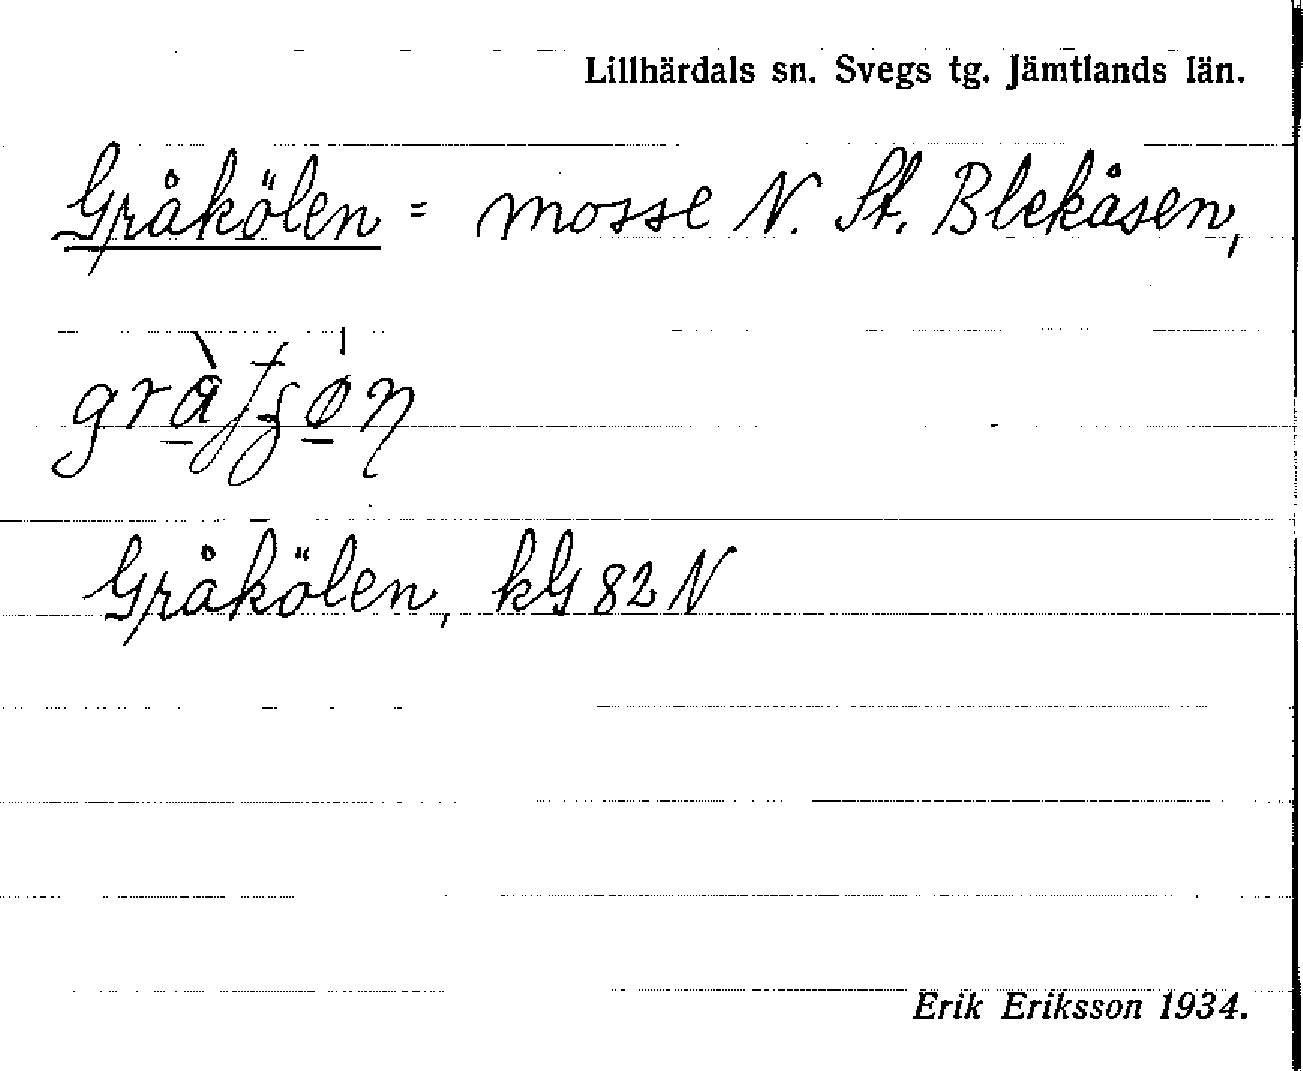 Lillhärdals sn. Svegs tg. Jämtlands län.
Gråkölen = mosse N. St. Blekåsen,
Gråkölen, kG 82 N
Erik Eriksson 1934.